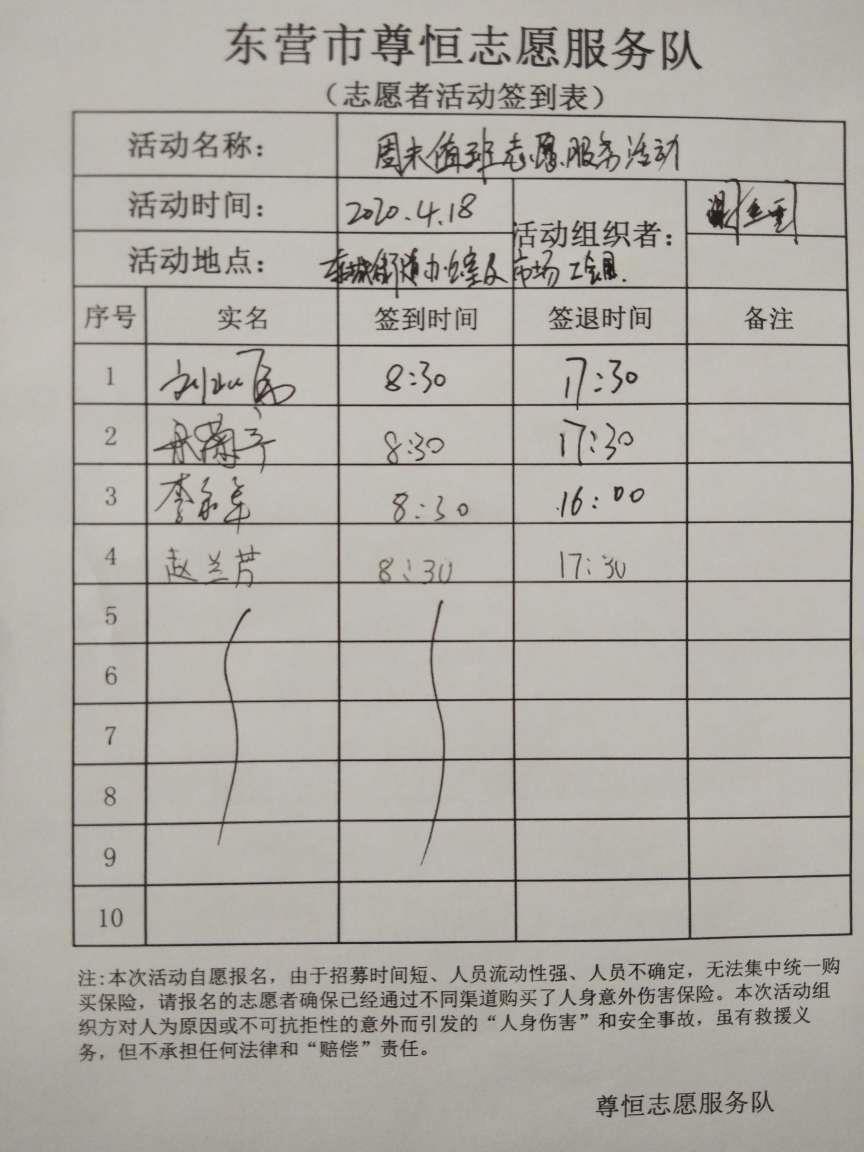 东营市尊恒志愿服务队
（志愿者活动签到表）
活动名称： 周末值班志愿服务活动
活动时间： 2020.4.18 活动组织者：
活动地点： 东城街道办公室及市场
序号 实名 签到时间 签退时间 备注
1 8:30 17:30
2 8:30 17:30
3 李永军 8:30 16:00
4 赵兰芳 8:30 17:30
5
6
7
8
9
10
注:本次活动自愿报名，由于招募时间短、人员流动性强、人员不确定，无法集中统一购
买保险，请报名的志愿者确保已经通过不同渠道购买了人身意外伤害保险。本次活动组
织方对人为原因或不可抗拒性的意外而引发的“人身伤害”和安全事故，虽有救援义
务，但不承担任何法律和“赔偿”责任。
尊恒志愿服务队